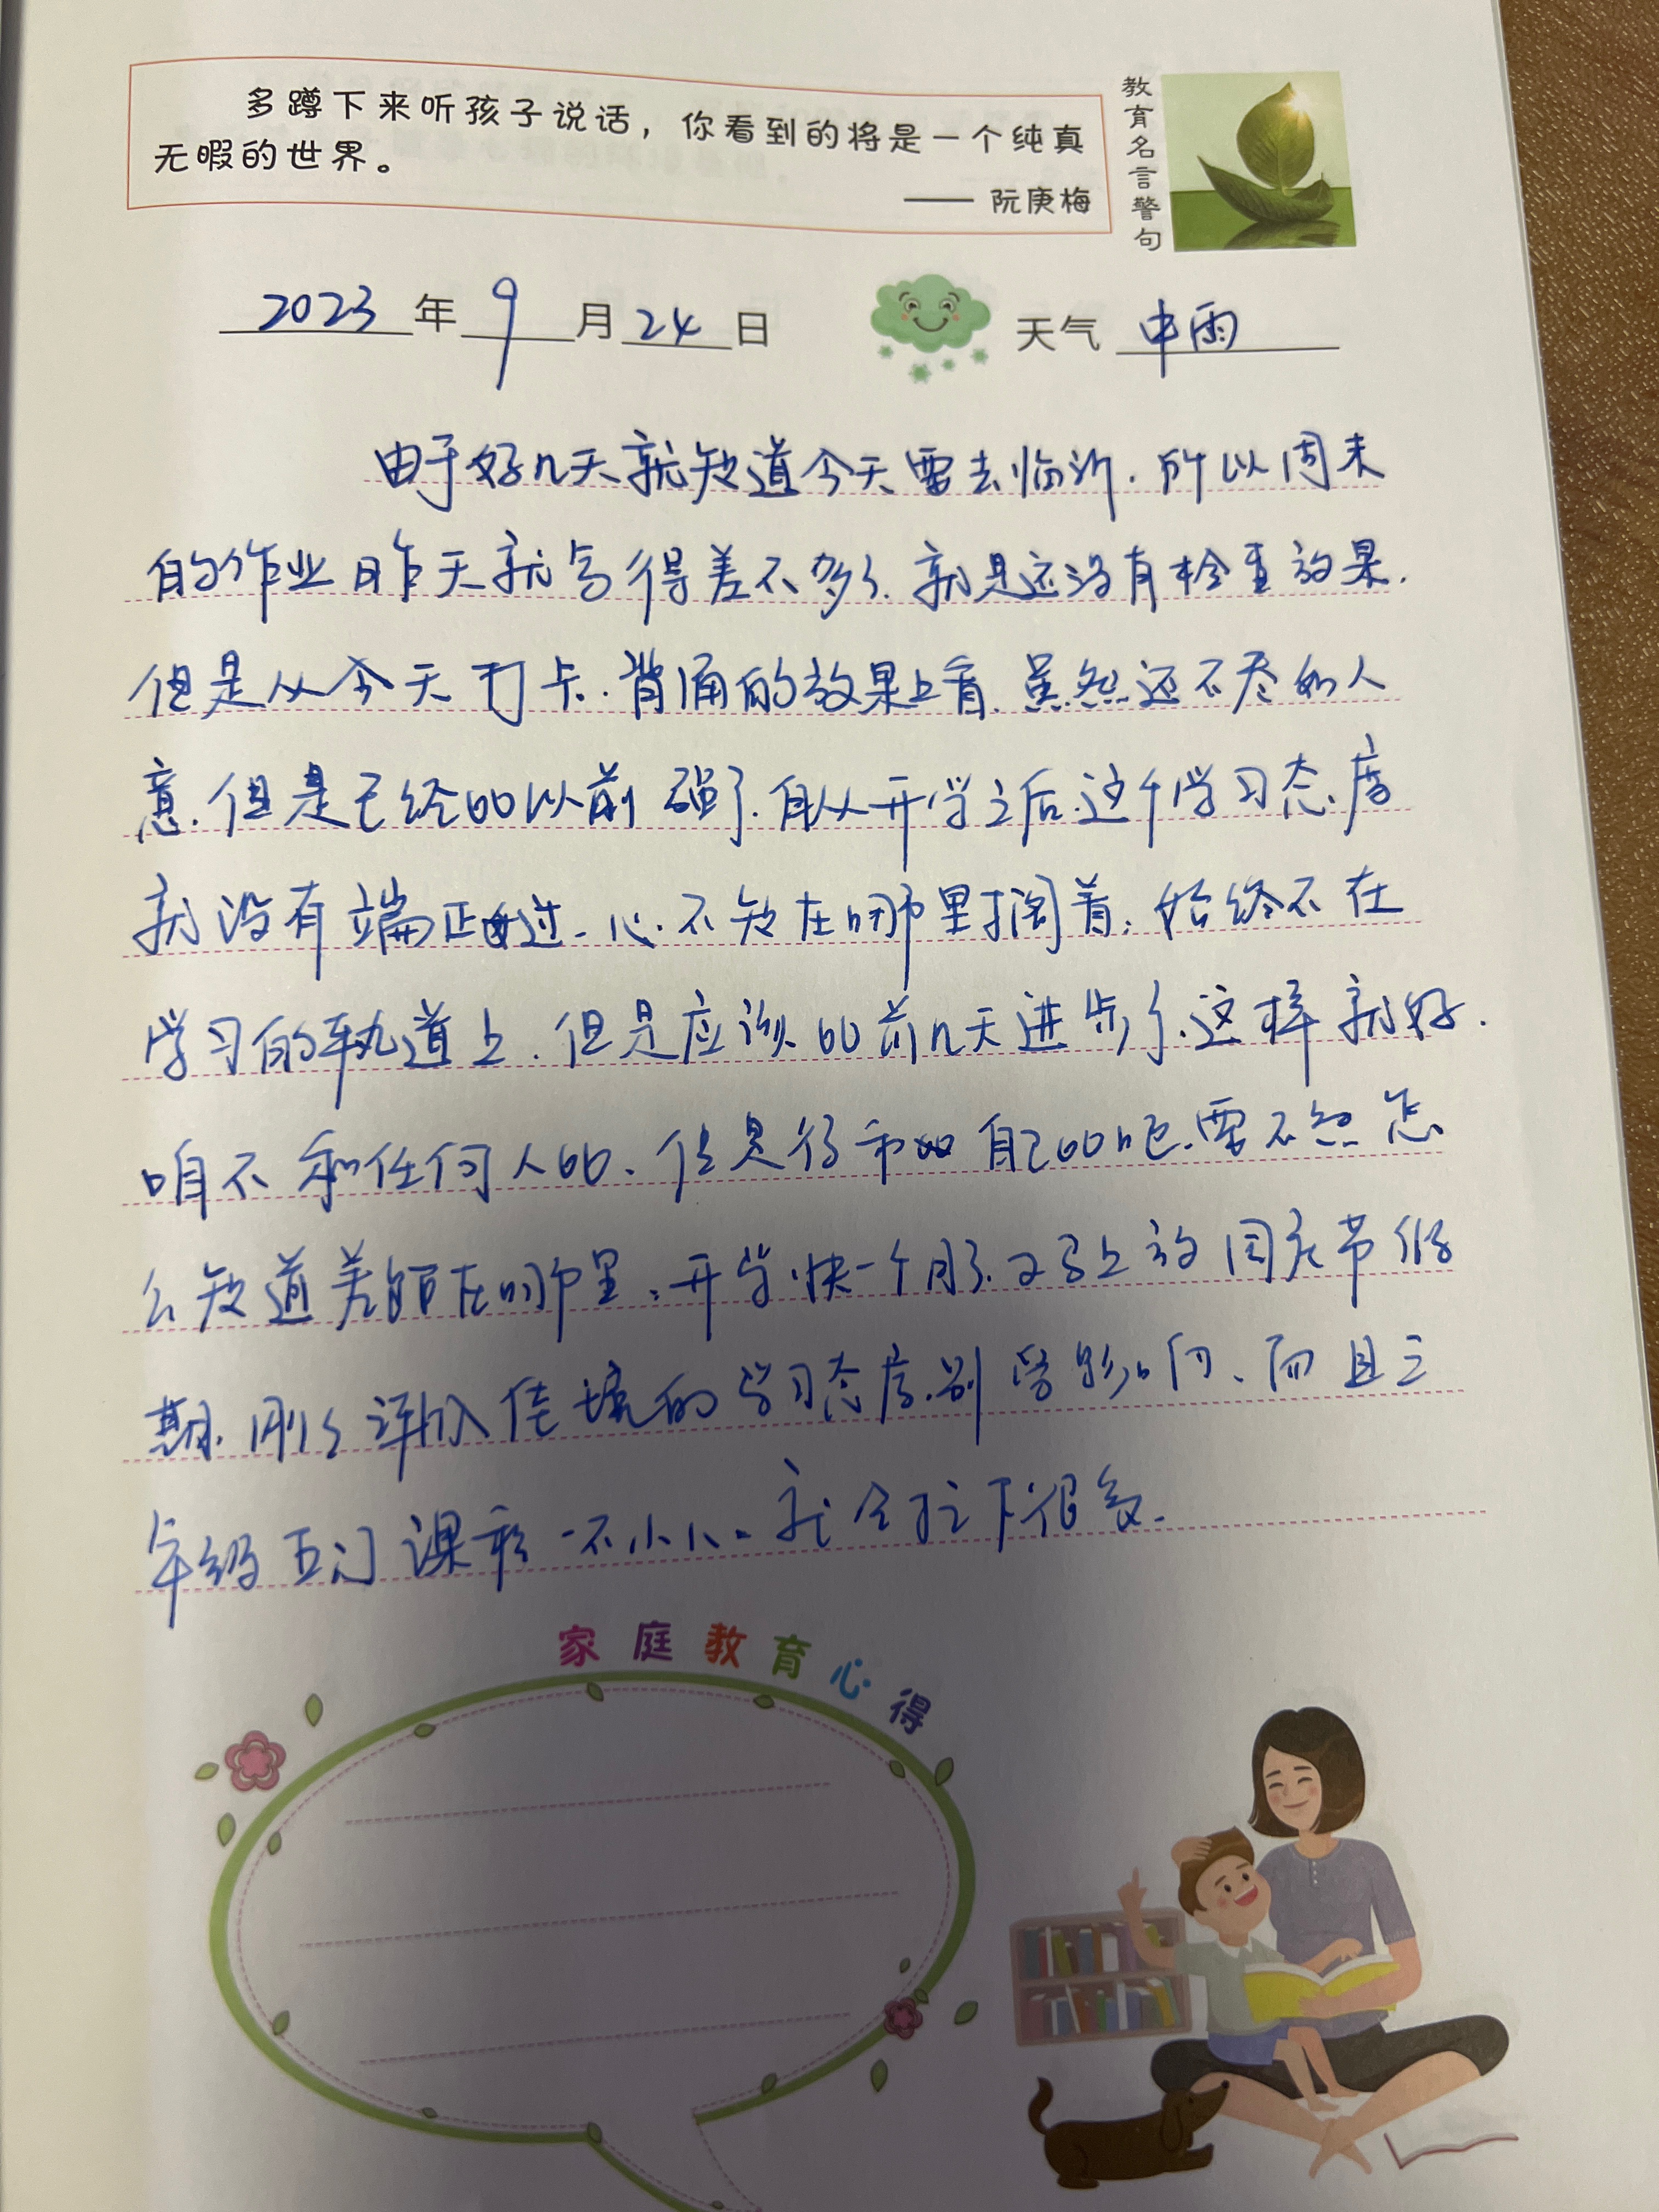 多蹲下来听孩子说话，你看到的将是一个纯真
无暇的世界。
—— 阮庚梅
教育名言警句
2023年9月24日 天气 中雨
由于好几天就知道今天要去临沂.所以周末
的作业昨天就写得差不多了.就是还没有检查效果.
但是从今天打卡.背诵的效果上看.虽然还不尽如人
意.但是已经比以前强了.自从开学之后.这个学习态度
就没有端正过.心不知在哪里搁着;始终不在
学习的轨道上.但是应该比前几天进步了.这样就好.
咱不和任何人比、但是得和自己比吧.要不然怎
么知道差距在哪里.开学快一个月了.又马上放国庆节假
期.刚刚渐入佳境的学习态度.别受影响、而且三
年级五门课程一不小心就会拉下很多.
家庭教育心得